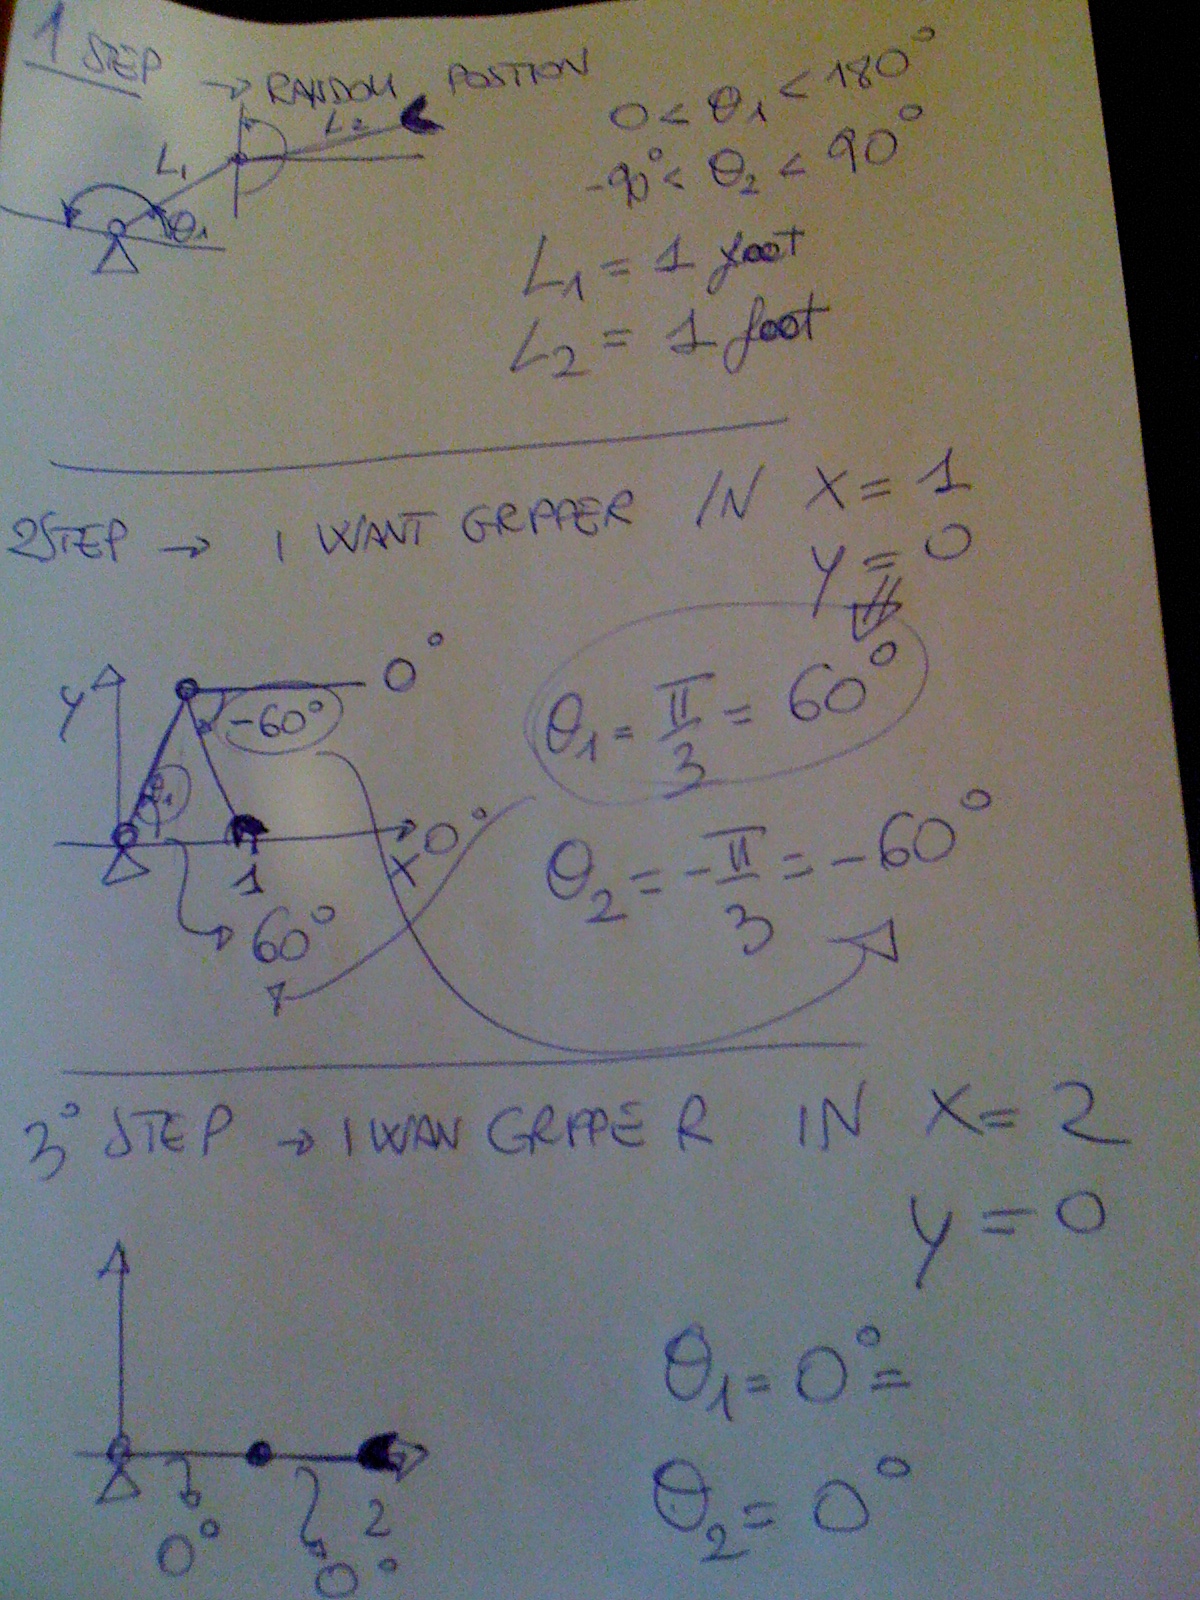 1 STEP → RANDOM POSTION
L2
L1
θ1
0 < θ1 < 180°
-90° < θ2 < 90°
L1 = 1 foot
L2 = 1 foot
2STEP → I WANT GRPPER IN X = 1
y = 0
y
0°
-60°
θ1
1
x
0°
60°
θ1 = π/3 = 60°
θ2 = -π/3 = -60°
3° STEP → I WAN GRPPER IN X = 2
y = 0
0°
2
0°
θ1 = 0° =
θ2 = 0°